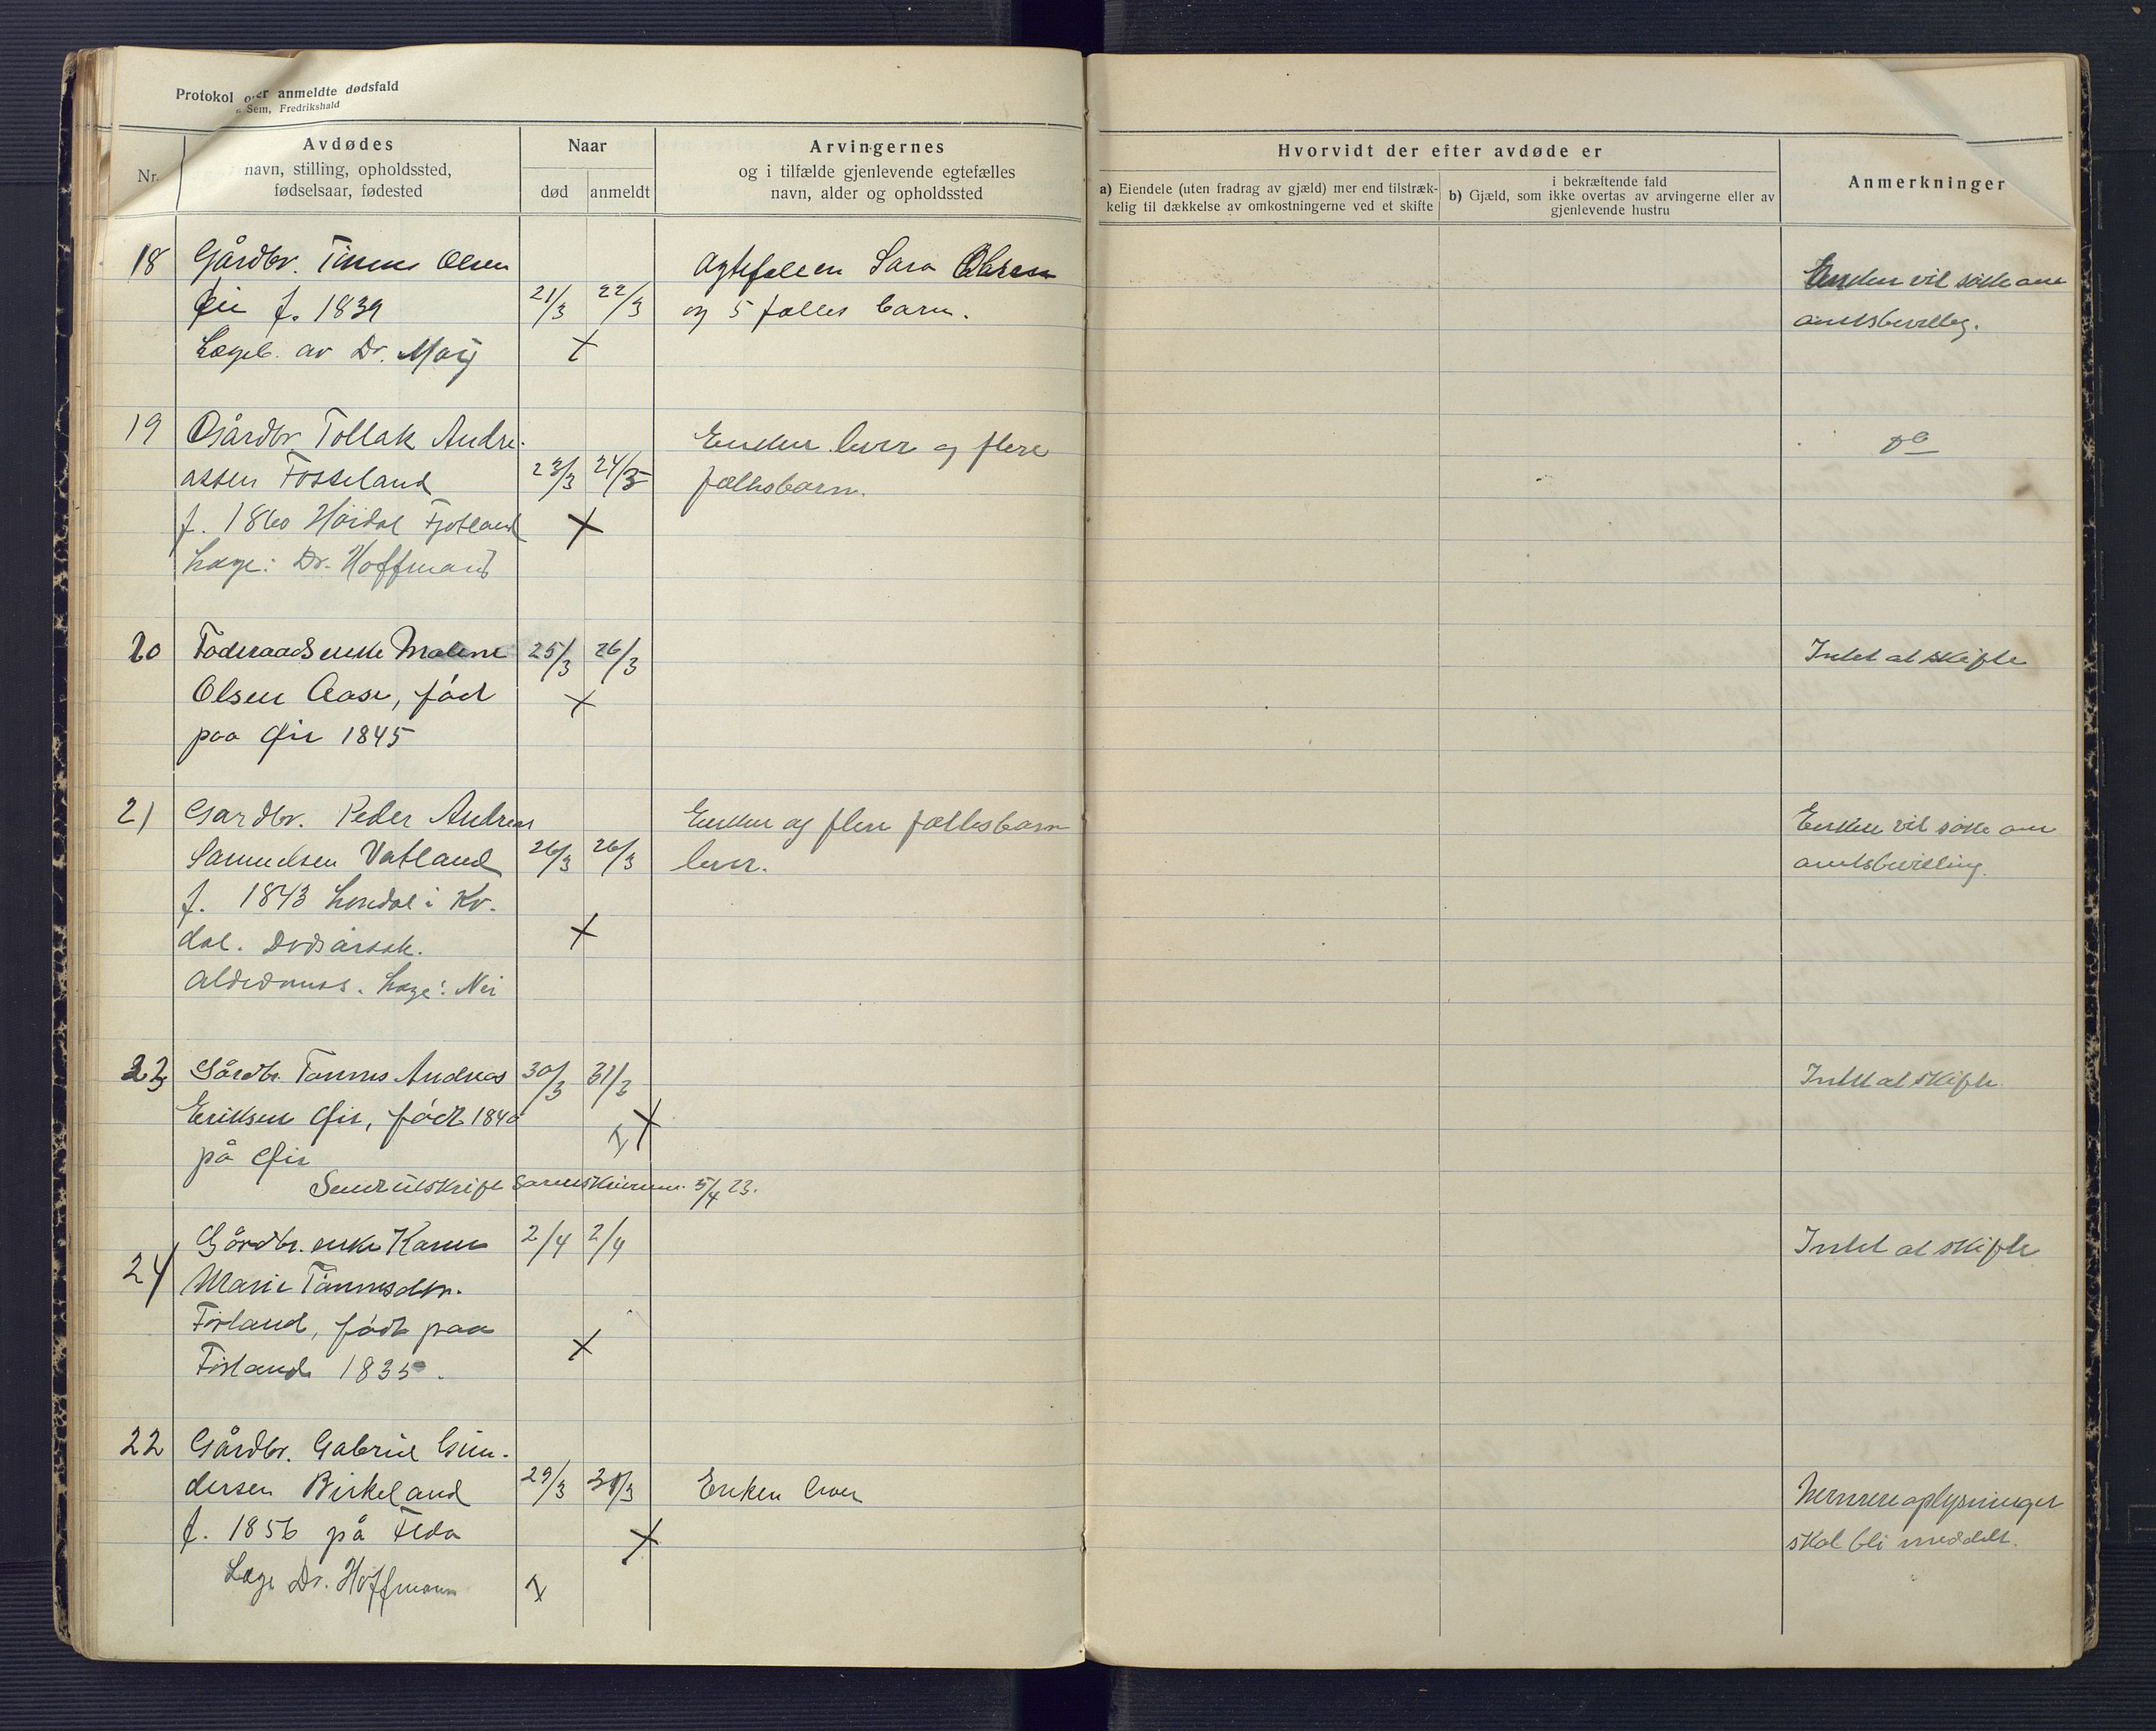 Protokol over anmeldte dødsfald
Sem, Fredrikshald
Nr.
Avdødes
navn, stilling, opholdssted,
fødselsaar, fødested
Naar
død
anmeldt
Arvingernes
og i tilfælde gjenlevende egtefælles
navn, alder og opholdssted
Hvorvidt der efter avdøde er
a) Eiendele (uten fradrag av gjæld) mer end tilstræk-
kelig til dækkelse av omkostningerne ved et skifte
i bekræftende fald
b) Gjæld, som ikke overtas av arvingerne eller av
gjenlevende hustru
Anmerkninger
18 Gårdbr. Tønnes Olsen
Øie f. 1839 21/3 22/3
Lægeb. av Dr.
Ægtefællen Sara
og 5 fælles barn.
Enken vil søke om
amtsbevillig.
19 Gårdbr Tollak Andre-
assen Fosseland 23/3 24/3
f. 1860 Høidal Fjotland
Læge: Dr. Hoffmann
Enken lever og flere
fællesbarn.
do
20 Føderaadsenke Malene 25/3 26/3
Olsen Aase, född
paa Øie 1845
Intet at skifte
21 Gardbr. Peder Andreas
Samuelsen Vatland 26/3 26/3
f. 1843 i Kv.
dal. Dødsårsak.
Læge: Nei
Enken og flere fællesbarn
lever.
Enken vil søke om
amtsbevilling.
23 Gårdbr. Tønnes Andreas 30/3 31/3
Eriksen Øie, født 1840
på Øie
Sendt utskrift Sorenskriveren. 5/4 23.
Intet at skifte.
24 Gårdbr. enke Karen 2/4 2/4
Marie Tønnesdtr.
Førland, født paa
Førland 1835.
Intet at skifte
22 Gårdbr. Gabriel Gun-
dersen Birkeland 29/3 31/3
f. 1856 på Feda
Læge Dr. Hoffmann
Enken lever
Nærmere oplysninger
skal bli meddelt.